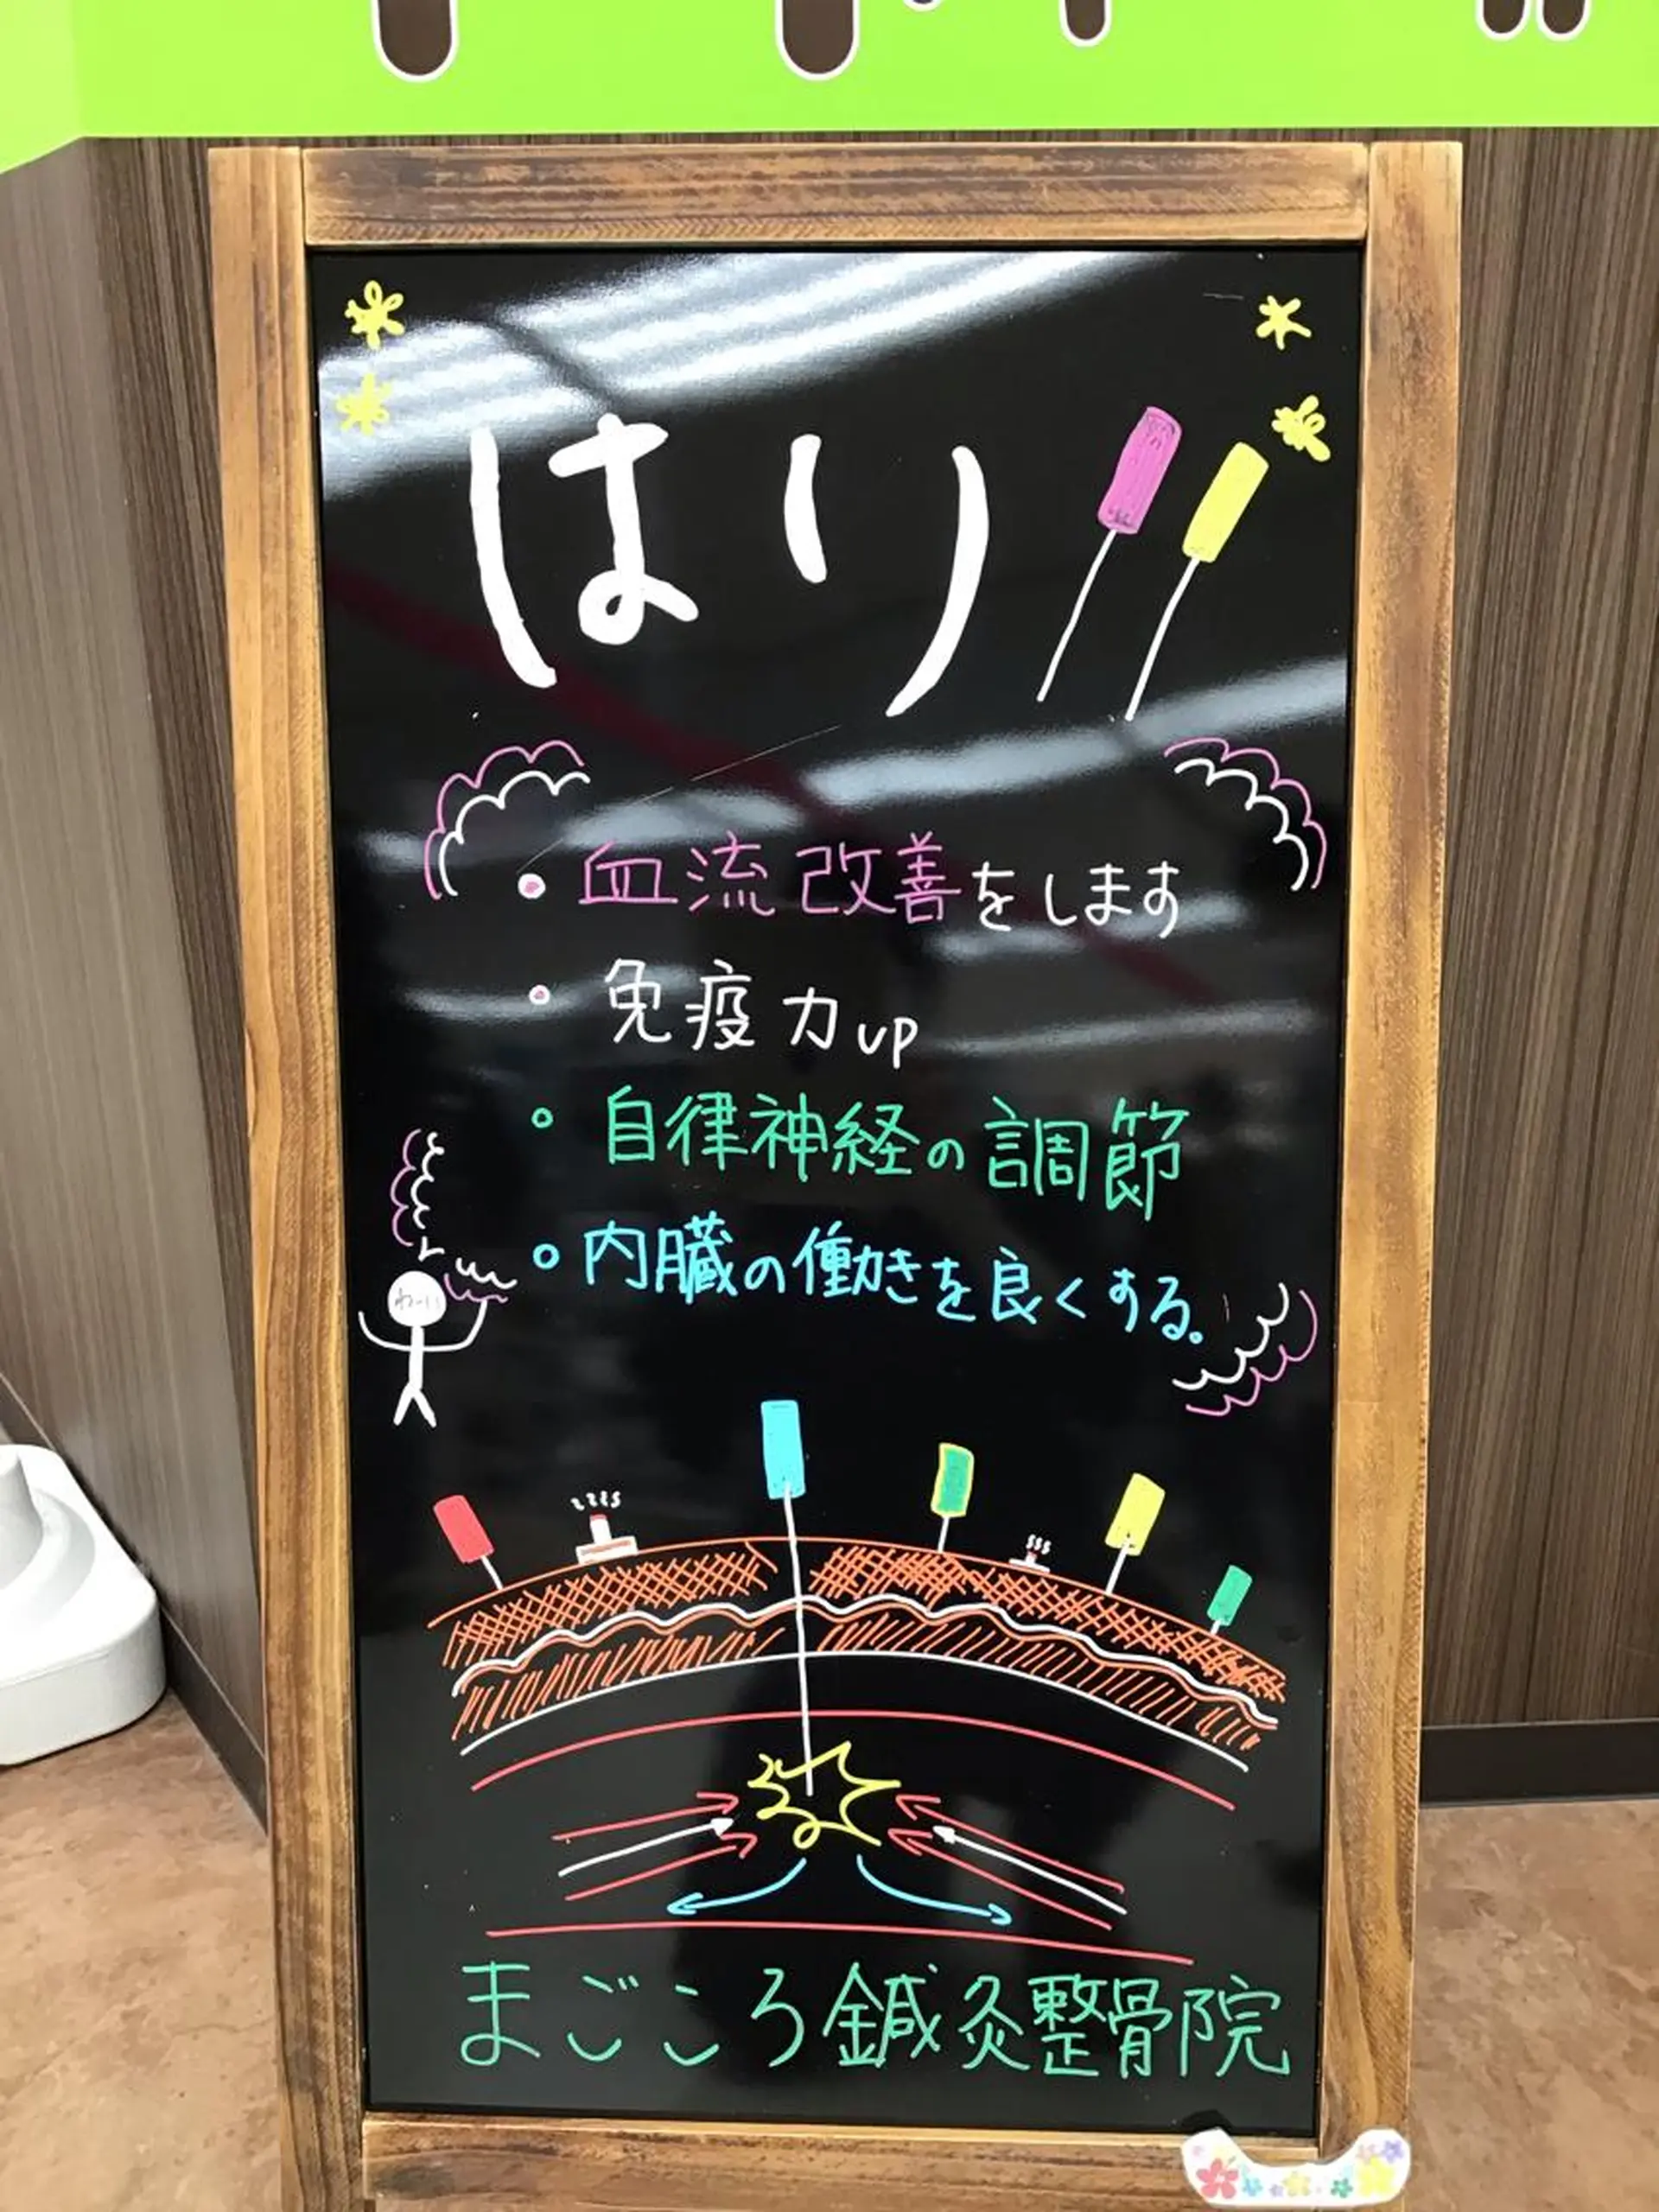 はり
・血流改善をします
・免疫力up
・自律神経の調節
・内臓の働きを良くする。
わーい
まごころ鍼灸整骨院